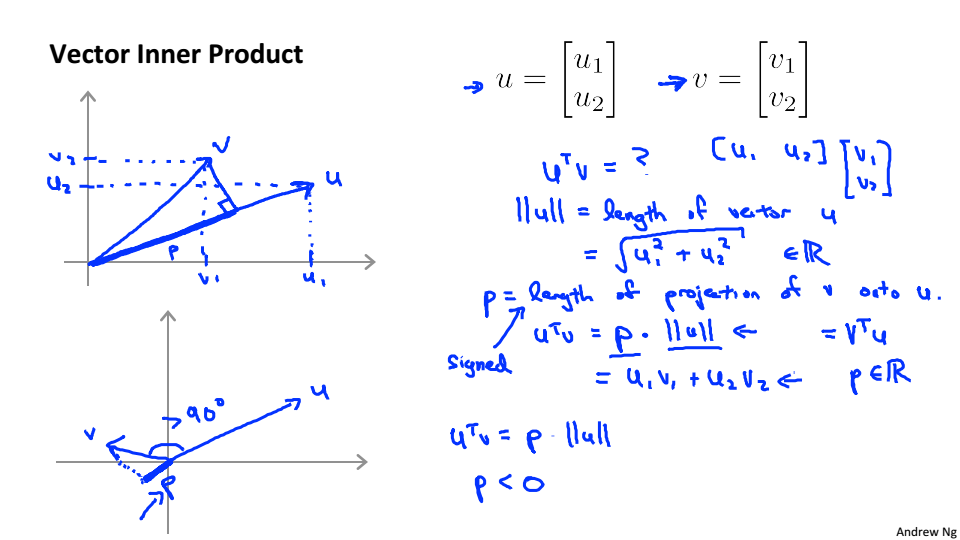 Vector Inner Product
→ u = [u1 u2] → v = [v1 v2]
v2
u2
v
u
p
v1
u1
uᵀv = ? [u1 u2] [v1 v2]
||u|| = length of vector u
= √u1² + u2² ∈ ℝ
p = length of projection of v onto u.
signed
uᵀv = p · ||u|| ← = vᵀu
= u1v1 + u2v2 ← p ∈ ℝ
>90°
u
v
p
uᵀv = p · ||u||
p < 0
Andrew Ng